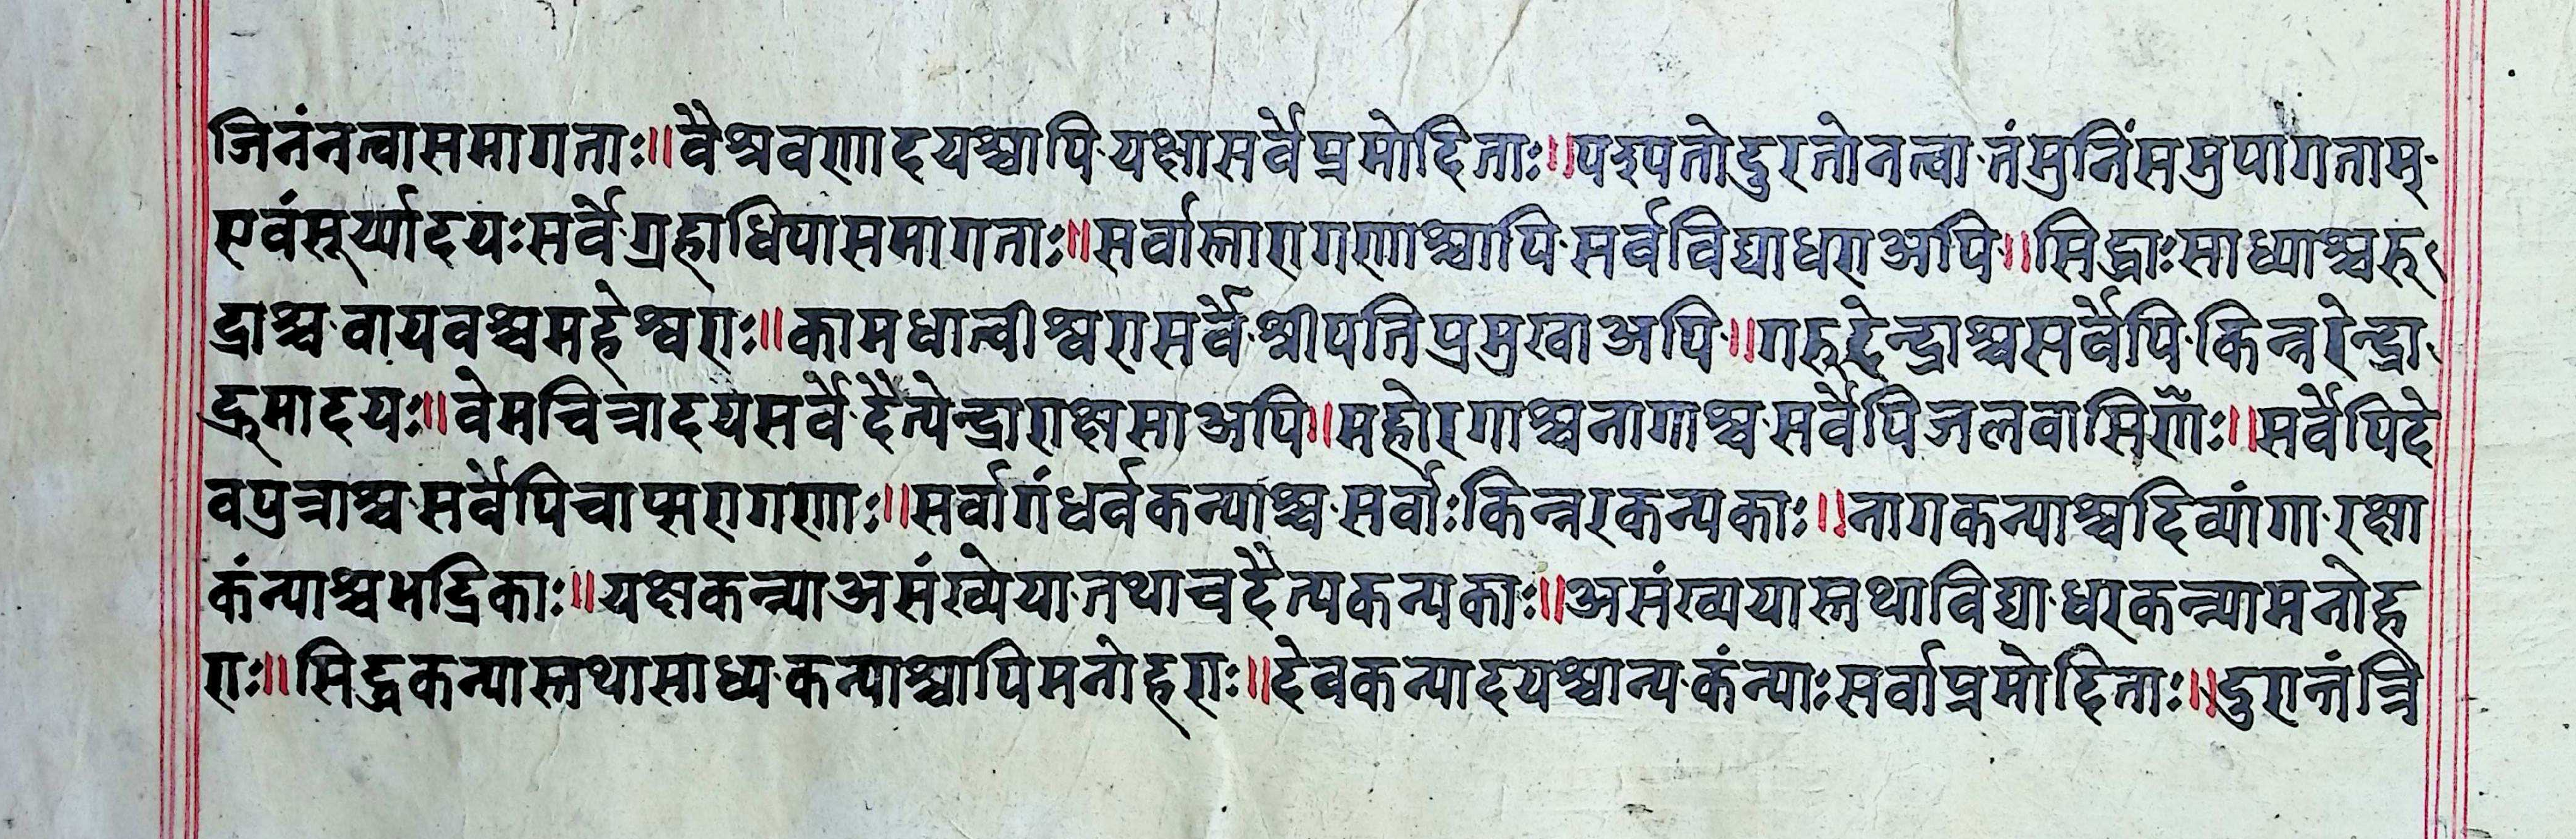 जिनंनत्वासमागताः॥वैश्रवणादयश्चापि·यक्षासर्वेप्रमोदिताः॥पश्यतोदुरतोनत्वा·तंमुनिंसमुपागताम्·
एवंसूर्य्यादयःसर्वे·ग्रहाधिपासमागताः॥सर्वास्तारागणाश्चापि·सर्वविद्याधराअपि॥सिद्धाःसाध्याश्चरु
द्राश्च·वायवश्चमहेश्वराः॥कामधात्वीश्वरासर्वे·श्रीपतिप्रमुखाअपि॥गरुदेन्द्राश्चसर्वेपि·किन्नरेन्द्रा
द्रुमादयः॥वेमचित्रादयसर्वे·दैत्येन्द्राराक्षसाअपि॥महोरगाश्चनागाश्च·सर्वेपिजलवासिणोः॥सर्वेपिदे
वपुत्राश्च·सर्वेपिचाप्सरागणाः॥सर्वागंधर्वकन्याश्च·सर्वाःकिन्नरकन्यकाः॥नागकन्याश्चदिव्यांगा·रक्षा
कंन्याश्चभद्रिकाः॥यक्षकन्न्याअसंख्येया·तथाचदैत्यकन्यकाः॥असंख्ययास्तथाविद्या·धरकन्न्यामनोह
राः॥सिद्धकन्यास्तथासाध्य·कन्याश्चापिमनोहराः॥देवकन्यादयश्चान्य·कंन्याःसर्वाप्रमोदिताः॥दुरात्तंत्रि